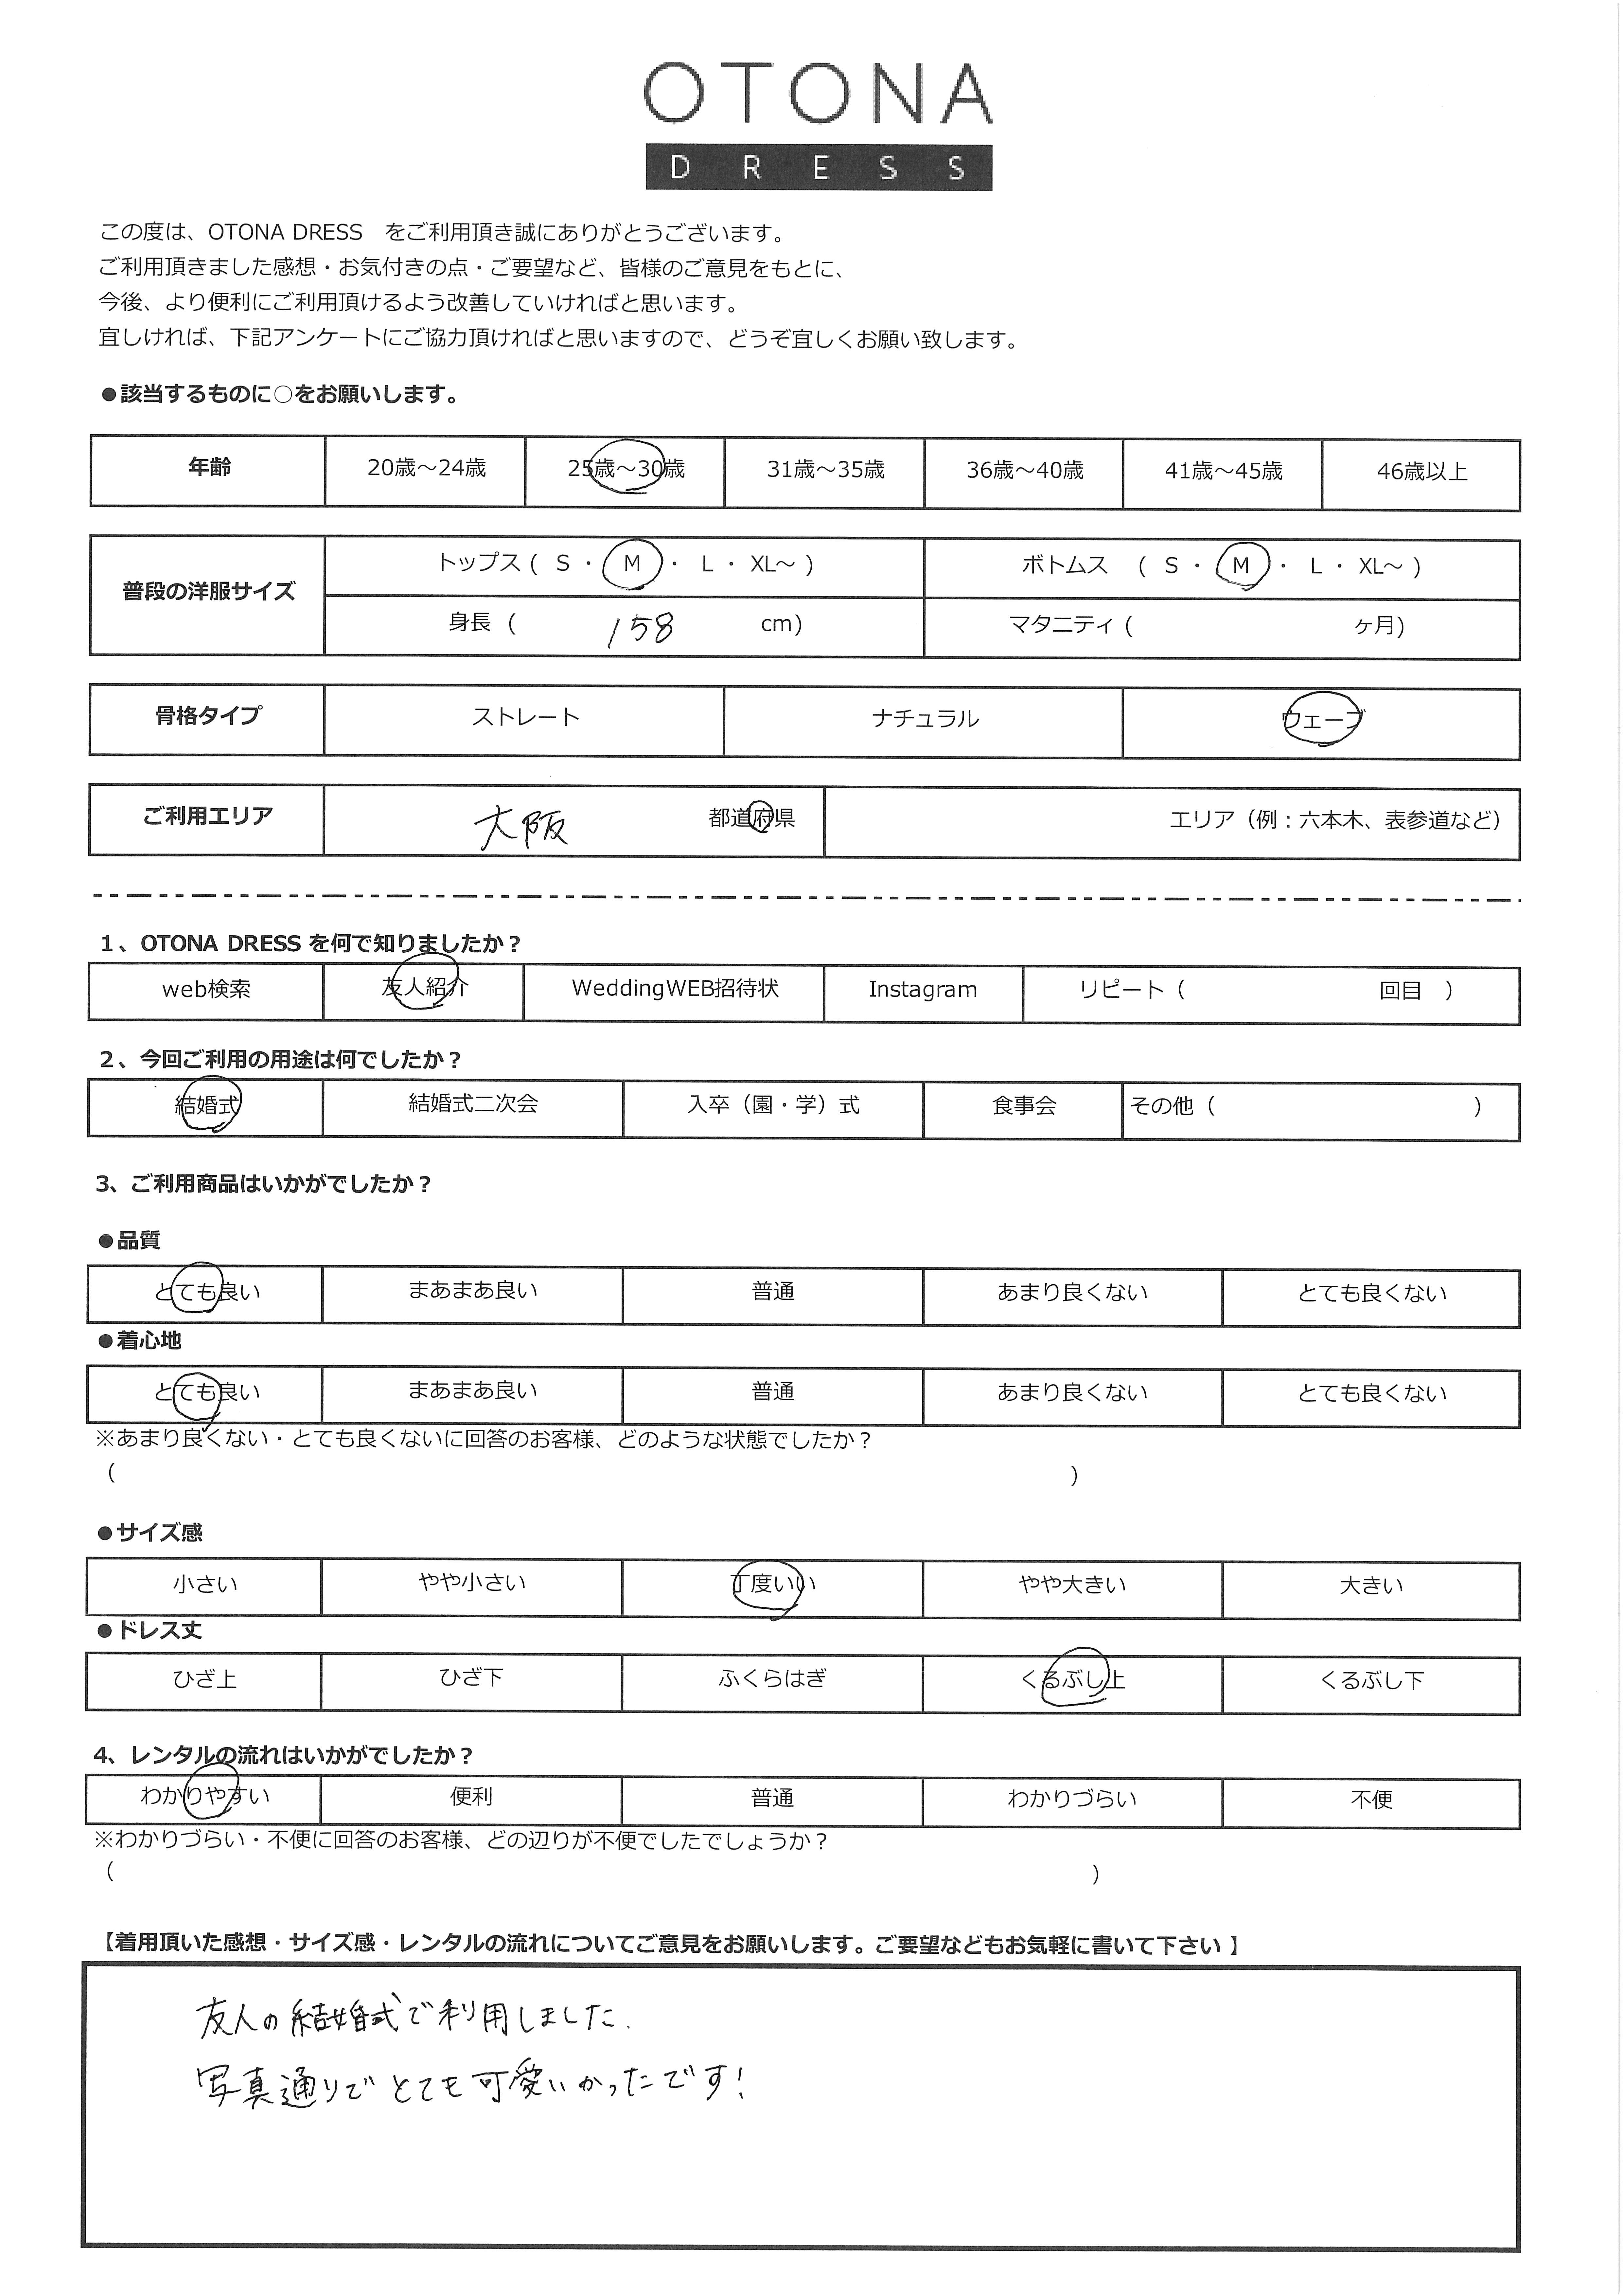 OTONA
DRESS
この度は、OTONA DRESS　をご利用頂き誠にありがとうございます。
ご利用頂きました感想・お気付きの点・ご要望など、皆様のご意見をもとに、
今後、より便利にご利用頂けるよう改善していければと思います。
宜しければ、下記アンケートにご協力頂ければと思いますので、どうぞ宜しくお願い致します。
●該当するものに○をお願いします。
年齢 20歳～24歳 25歳～30歳 31歳～35歳 36歳～40歳 41歳～45歳 46歳以上
普段の洋服サイズ トップス ( S ・ M ・ L ・ XL～ ) ボトムス ( S ・ M ・ L ・ XL～ )
身長 ( 158 cm) マタニティ ( ヶ月)
骨格タイプ ストレート ナチュラル ウェーブ
ご利用エリア 大阪 都道府県 エリア（例：六本木、表参道など）
1、OTONA DRESS を何で知りましたか？
web検索 友人紹介 WeddingWEB招待状 Instagram リピート（ 回目 ）
2、今回ご利用の用途は何でしたか？
結婚式 結婚式二次会 入卒（園・学）式 食事会 その他（ ）
3、ご利用商品はいかがでしたか？
●品質
とても良い まあまあ良い 普通 あまり良くない とても良くない
●着心地
とても良い まあまあ良い 普通 あまり良くない とても良くない
※あまり良くない・とても良くないに回答のお客様、どのような状態でしたか？
（ ）
●サイズ感
小さい やや小さい 丁度いい やや大きい 大きい
●ドレス丈
ひざ上 ひざ下 ふくらはぎ くるぶし上 くるぶし下
4、レンタルの流れはいかがでしたか？
わかりやすい 便利 普通 わかりづらい 不便
※わかりづらい・不便に回答のお客様、どの辺りが不便でしたでしょうか？
（ ）
【着用頂いた感想・サイズ感・レンタルの流れについてご意見をお願いします。ご要望などもお気軽に書いて下さい 】
友人の結婚式で利用しました.
写真通りでとても可愛いかったです!